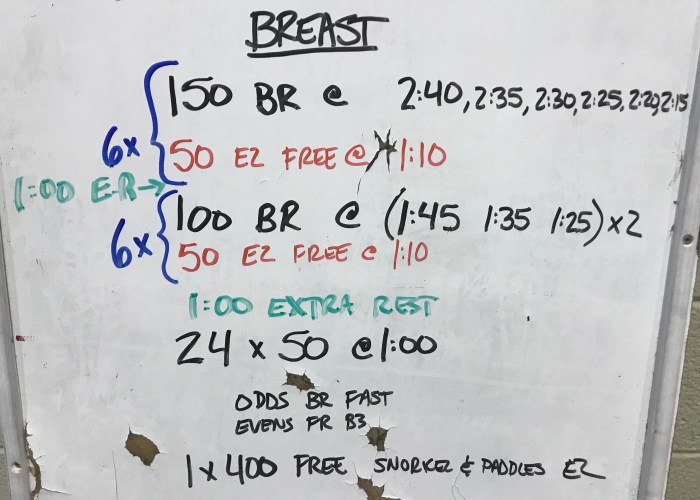 BREAST
150 BR @ 2:40, 2:35, 2:30, 2:25, 2:20, 2:15
6x
50 EZ FREE @ 1:10
1:00 E-R →
100 BR @ (1:45 1:35 1:25) x 2
6x
50 EZ FREE @ 1:10
1:00 EXTRA REST
24 x 50 @ 1:00
ODDS BR FAST
EVENS FR B3
1 x 400 FREE SNORKEL & PADDLES EZ